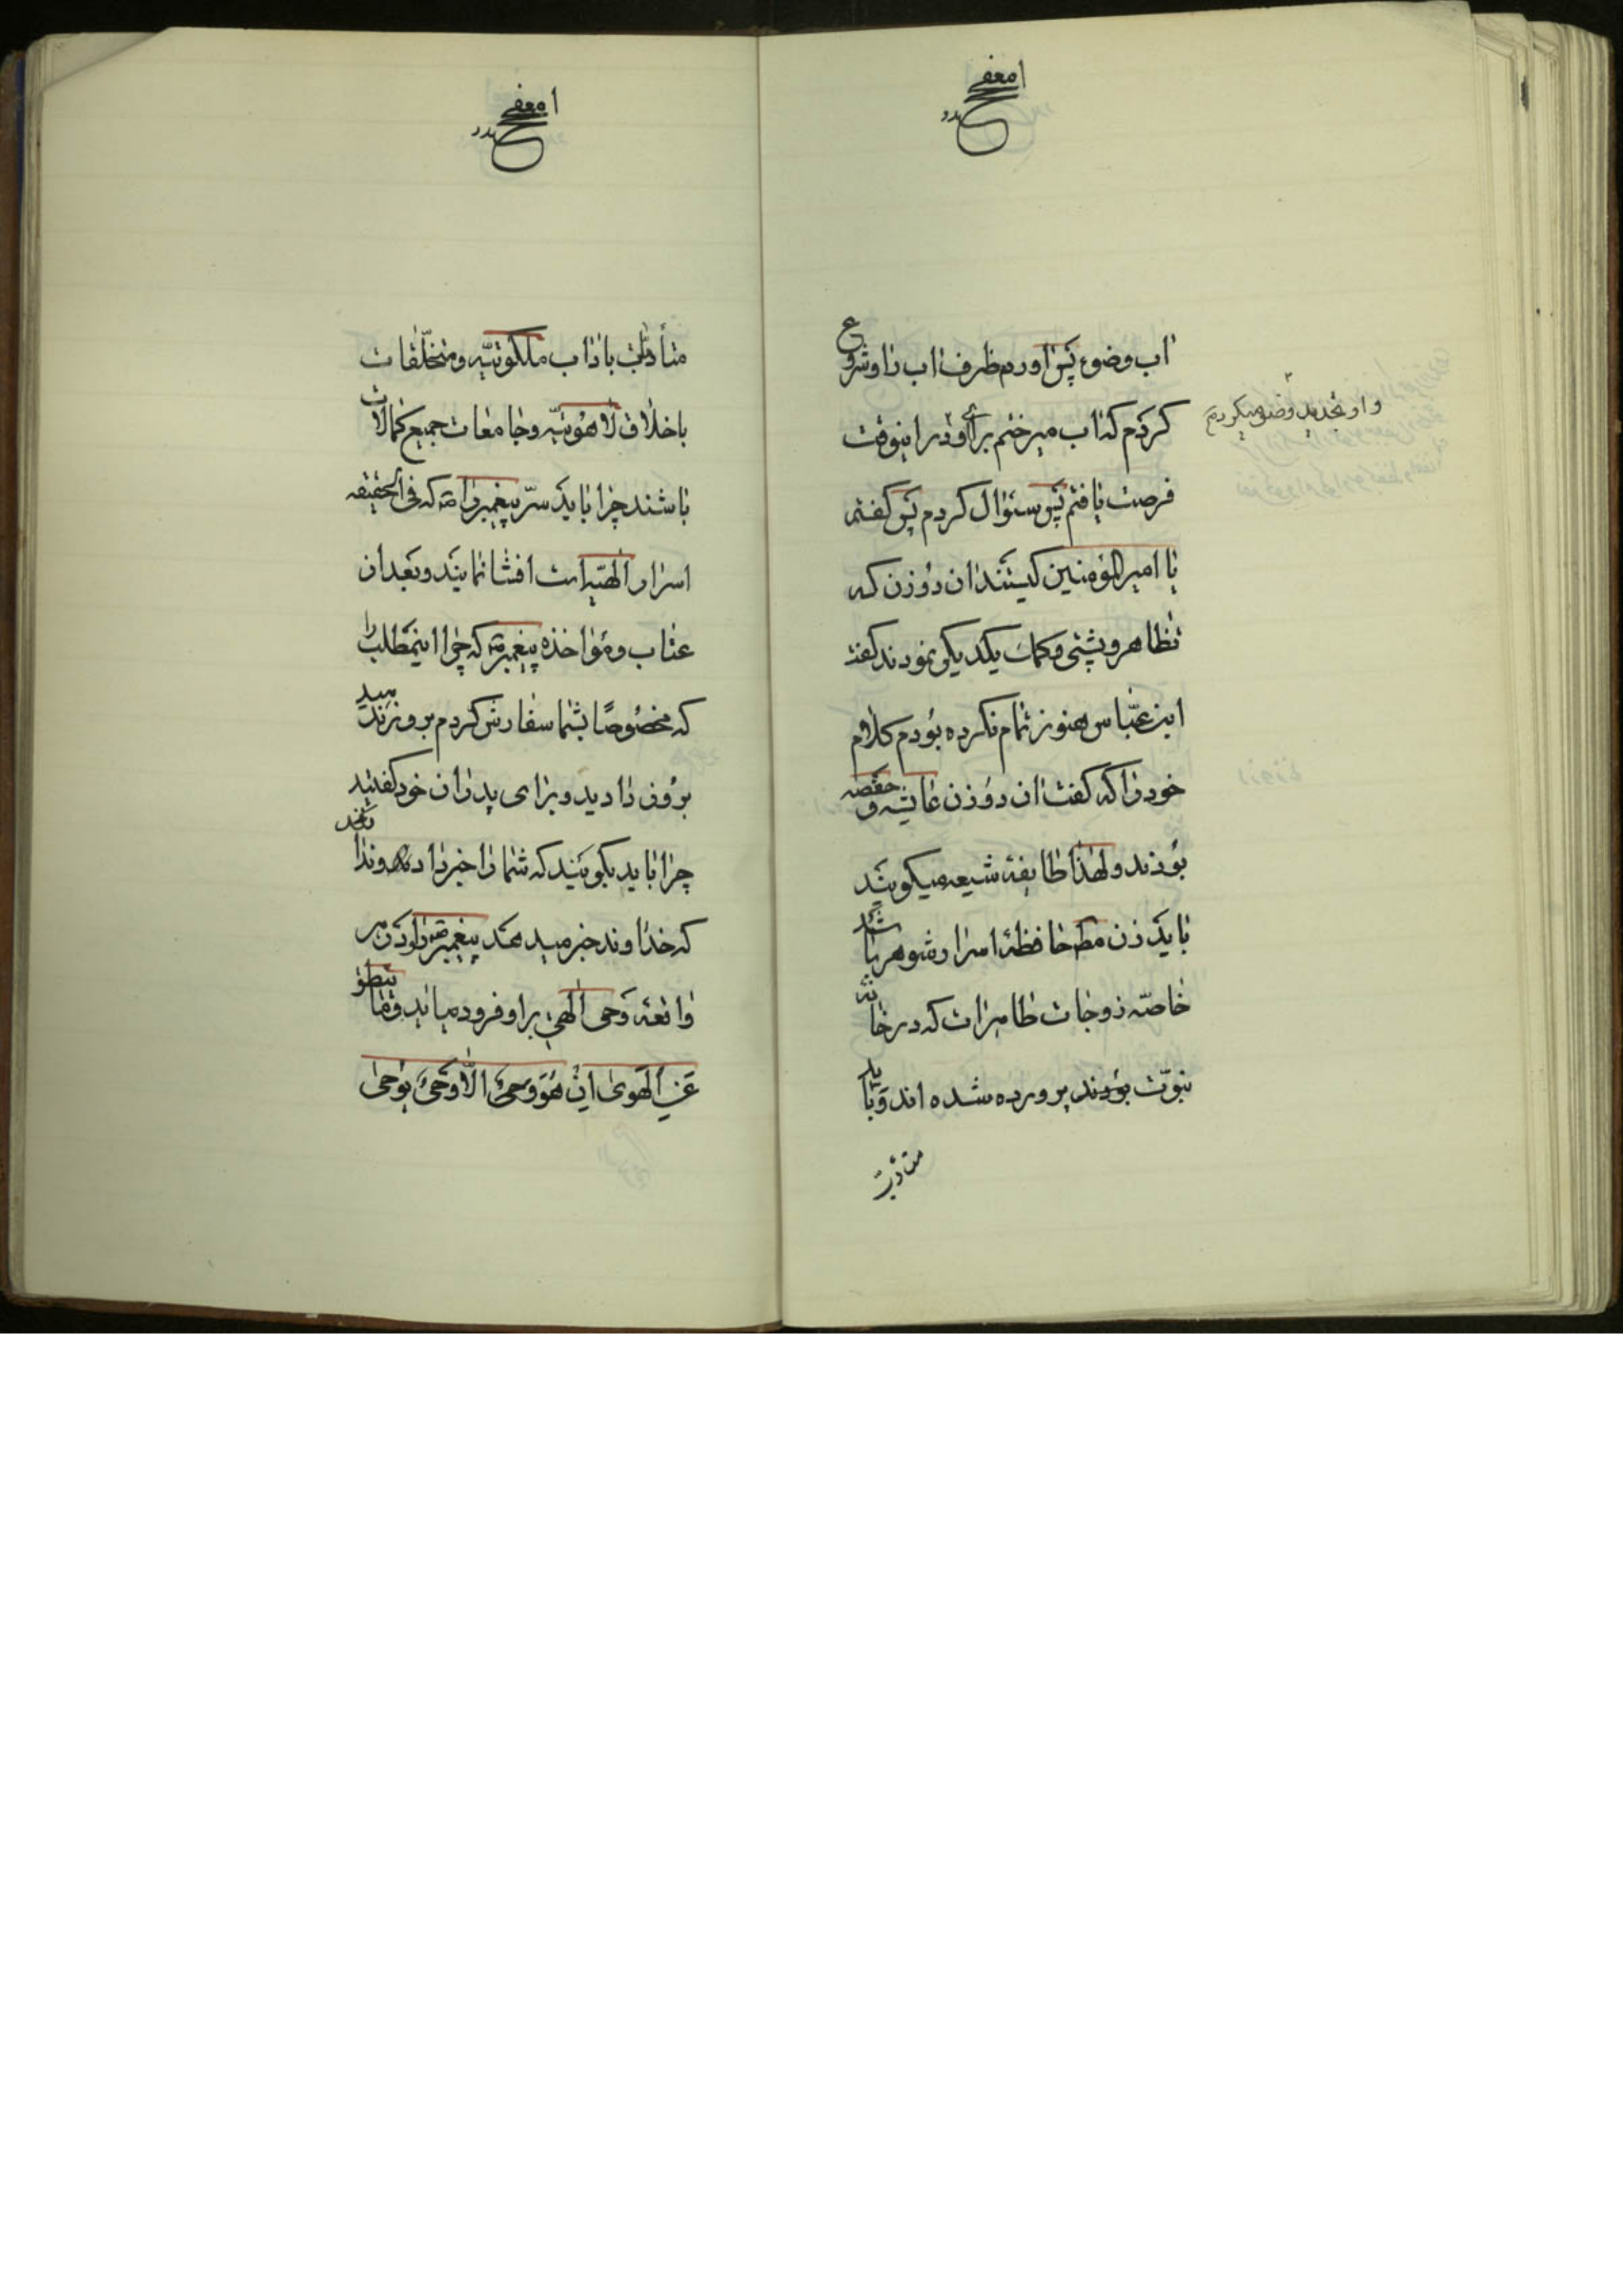 اب وضوء پس اوردم ظرف اب را و شروع
کردم که اب میرختم برای او در اینوقت
و او تجدید وضو میکردم
فرصت یافتم پس سئوال کردم پس گفتم
یا امیر المؤمنین کیستند ان دو زن که
تظاهر و پشتی و کمک یکدیگر نمودند گفت
ابن عباس هنوز تمام نکرده بودم کلام
خود را که گفت ان دو زن عایشه و حفصه
بودند و لهذا طایفهٔ شیعه میگویند
باید زن حافظهٔ اسرار شوهر باشد
خاصّه زوجات طاهرات که در خانهٔ
نبوّت بودند پرورده شده اند و باید
متأدّبت
متأدّبت باداب ملکوتیّه و متخلّقات
باخلاق لاهوتیّه و جامعات جمیع کمالات
باشند چرا باید سرّ پیغمبر را که فی الحقیقه
اسرار الهیّه است افشا نمایند و بعد از
عتاب و مؤاخذه پیغمبر که چرا اینمطلب را
که مخصوصًا بشما سفارش کردم بروز ندهید
بروز دادید و برای پدران خود گفتید
چرا باید بگویند که شما را خبر داد و ندانند
که خداوند خبر میدهد پیغمبر را و در هر
واقعه وحی الهی بر او فرود میاید و ما ینطق
عن الهوی ان هو الّا وحی یوحی